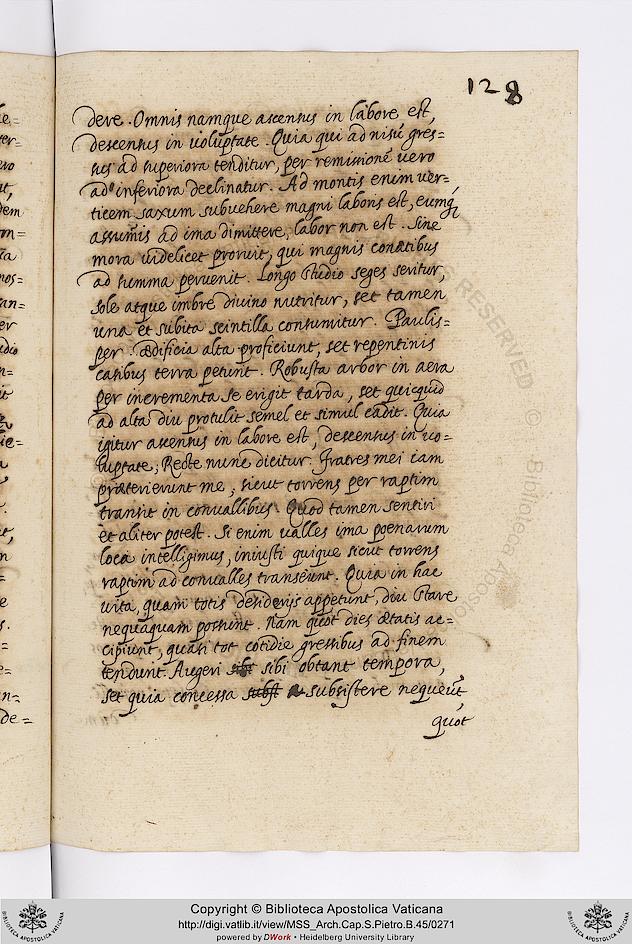 128
dere. Omnis namque ascensus in labore est,
descensus in uoluptate. Quia qui ad nisũ gres=
sus ad superiora tenditur, per remissionẽ uero
ad inferiora declinatur. Ad montis enim uer=
ticem saxum subuehere magni laboris est, eumq;
assumis ad ima dimittere, labor non est. Sine
mora uidelicet proruit, qui magnis conatibus
ad summa peruenit. Longo studio seges seritur,
sole atque imbre diuino nutritur, set tamen
una et subita scintilla consumitur. Paulis=
per ædificia alta proficiunt, set repentinis
casibus terra petunt. Robusta arbor in aera
per incrementa se erigit tarda, set quicquid
ad alta diu protulit semel et simul cadit. Quia
igitur ascensus in labore est, descensus in uo=
luptate, Recte nunc dicitur. Fratres mei iam
præterierunt me, sicut torrens per raptim
transit in conuallibus. Quod tamen sentiri
et aliter potest. Si enim ualles ima poenarum
loca intelligimus, iniusti quique sicut torrens
raptim ad conualles transeunt. Quia in hac
uita, quam totis desiderijs appetunt, diu stare
nequaquam possunt. Nam quot dies ætatis ac=
cipiunt, quasi tot cotidie gressibus ad finem
tendunt. Augeri sibi obtant tempora,
set quia concessa subst subsistere nequeũt,
quot
le=
ter=
uero
ut,
dem
ta
nos=
an=
er
udio
n=
it
lie=
a
t,
n
e
s.
e=
n=
de=
RIGHTS RESERVED © Biblioteca Aposto
Copyright © Biblioteca Apostolica Vaticana
http://digi.vatlib.it/view/MSS_Arch.Cap.S.Pietro.B.45/0271
powered by DWork • Heidelberg University Library
BIBLIOTECA APOSTOLICA VATICANA
BIBLIOTECA APOSTOLICA VATICANA